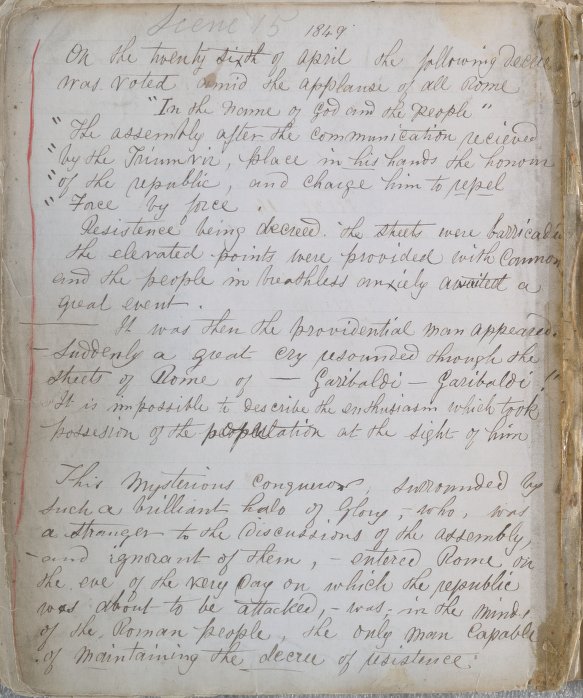 Scene 15 1849.
On the twenty sixth of april the following decree
was voted amid the applause of all Rome
"In the name of God and the people"
"The assembly after the communication recieved
"by the Triumvir, place in his hands the honour
"of the republic, and charge him to repel
"Force by force.
Resistence being decreed. the streets were barricad
the elevated points were provided with Cannon
and the people in breathless anxiely awaited a
great event.
It was then the providential man appeared.
— Suddenly a great cry resounded through the
streets of Rome of — Garibaldi — Garibaldi!"
It is impossible to describe the enthusiasm which took
possesion of the population at the sight of him
This mysterious conqueror, surrounded by
such a brilliant halo of Glory, - who, was
a stranger to the discussions of the assembly,
- and ignorant of them, - entered Rome, on
the eve of the very day on which the republic
was about to be attacked, - was - in the minds
of the Roman people, the only man capable
of maintaining the decree of resistence.